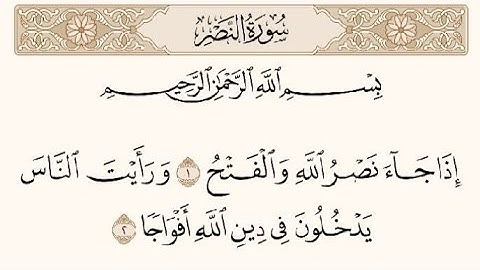 سُورَةُ النَّصْرِ
بِسْمِ ٱللَّهِ ٱلرَّحْمَٰنِ ٱلرَّحِيمِ
إِذَا جَآءَ نَصْرُ ٱللَّهِ وَٱلْفَتْحُ ١ وَرَأَيْتَ ٱلنَّاسَ
يَدْخُلُونَ فِى دِينِ ٱللَّهِ أَفْوَاجًا ٢